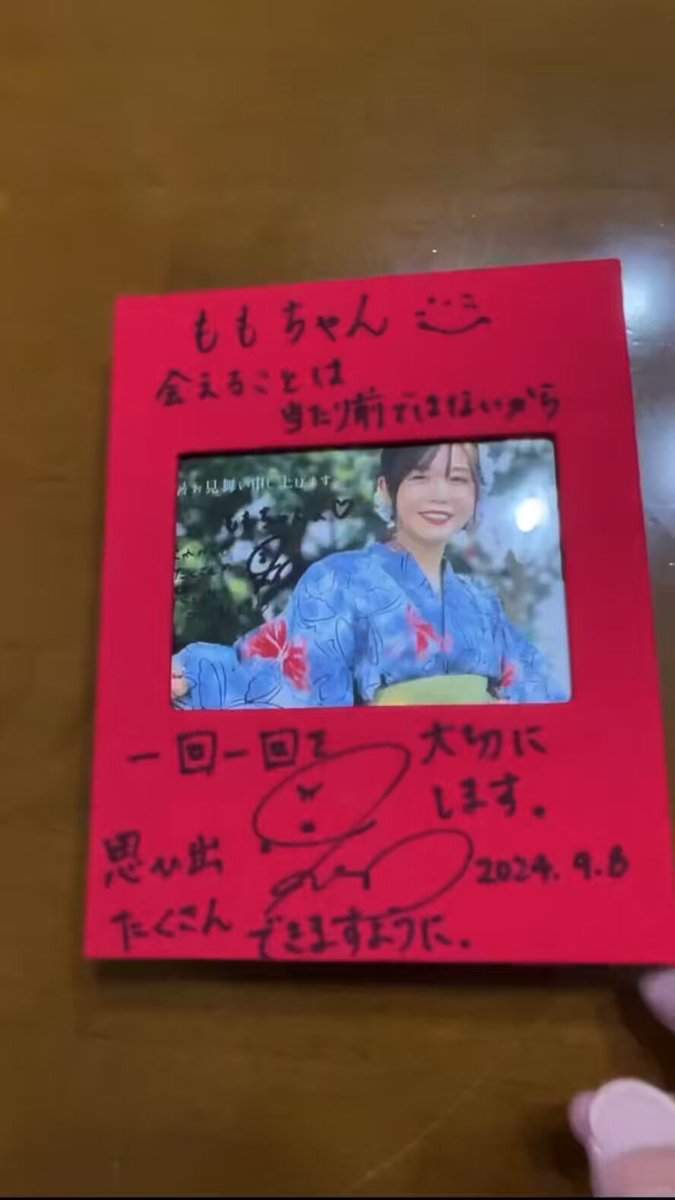 ももちゃん
会えることは
当たり前ではないから
お見舞い申し上げます
ももちゃんへ♡
一回一回を
大切に
します。
思い出
2024.9.6
たくさん
できますように。